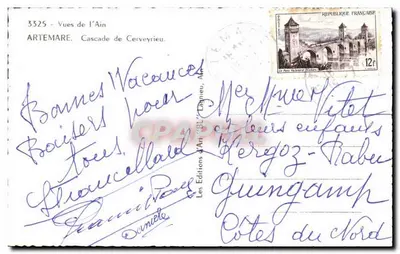 3525 - Vues de l'Ain
ARTEMARE. Cascade de Cerveyrieu.
REPUBLIQUE FRANÇAISE
12F
Bonnes Vacances
Baisers pour
tous
Francellard
Daniele
Les Editions d'Art
Mr et Mme Vitet
et leurs enfants
Kergoz-Rabu
Guingamp
Côtes du Nord